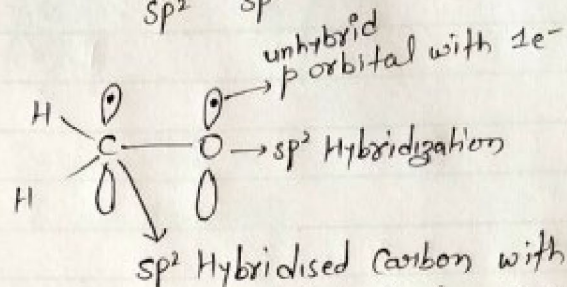 sp² sp
unhybrid
p orbital with 1e⁻
H
C O → sp² Hybridization
H
sp² Hybridised Carbon with